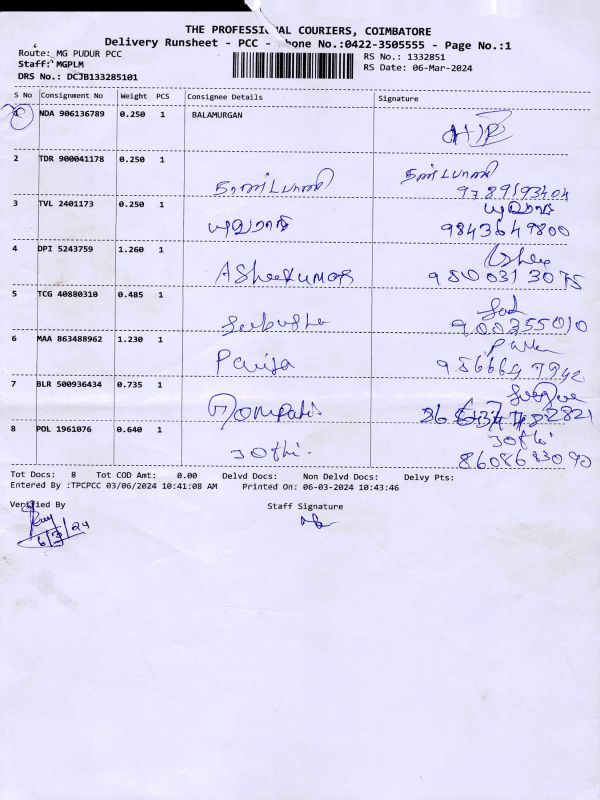 THE PROFESSIONAL COURIERS, COIMBATORE
Delivery Runsheet - PCC - Phone No.:0422-3505555 - Page No.:1
Route: MG PUDUR PCC RS No.: 1332851
Staff: MGPLM RS Date: 06-Mar-2024
DRS No.: DCJB133285101
S No Consignment No Weight PCS Consignee Details Signature
1 NDA 906136789 0.250 1 BALAMURGAN
2 TDR 900041178 0.250 1
9789193404
3 TVL 2401173 0.250 1
9843649800
4 DPI 5243759 1.260 1
AShokkumar 9500313075
5 TCG 40880310 0.485 1
900355010
6 MAA 863488962 1.230 1
7 BLR 500936434 0.735 1
8 POL 1961076 0.640 1
Jothi. Jothi
Tot Docs: 8 Tot COD Amt: 0.00 Delvd Docs: Non Delvd Docs: Delvy Pts:
Entered By :TPCPCC 03/06/2024 10:41:08 AM Printed On: 06-03-2024 10:43:46
Verified By Staff Signature
6/3/24